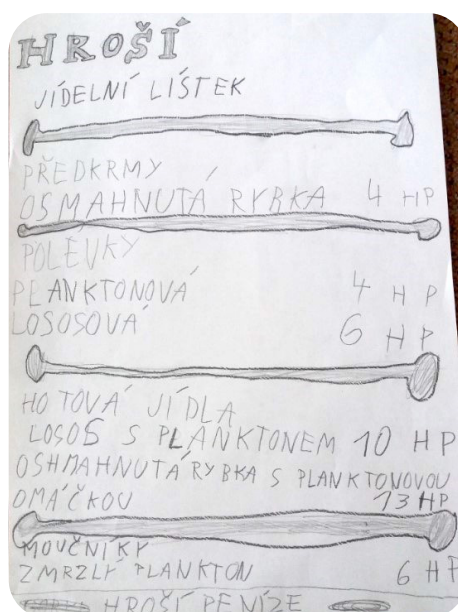 HROŠÍ
JÍDELNÍ LÍSTEK
PŘEDKRMY
OSMAHNUTÁ RYBKA 4 HP
POLEVKY
PLANKTONOVÁ 4 HP
LOSOSOVÁ 6 HP
HOTOVÁ JÍDLA
LOSOS S PLANKTONEM 10 HP
OSHMAHNUTÁ RYBKA S PLANKTONOVOU
OMÁČKOU 13 HP
MOUČNÍKY
ZMRZLÝ PLANKTON 6 HP
HROŠÍ PENÍZE